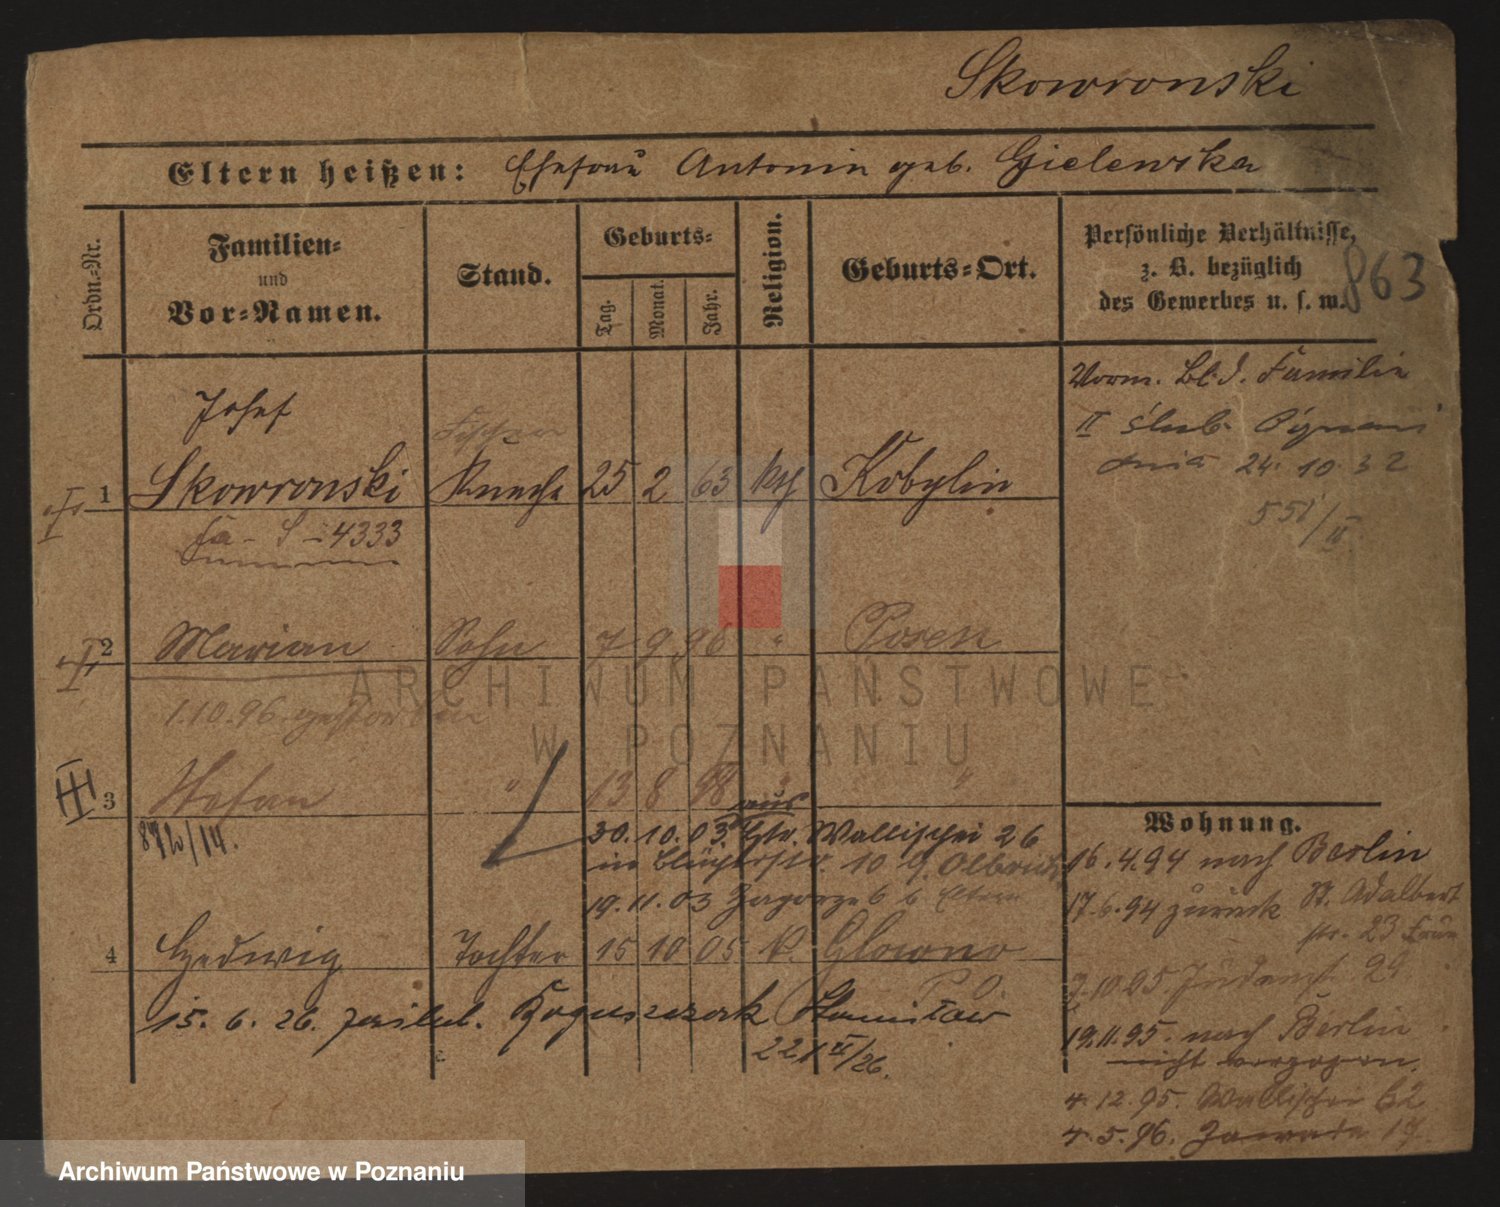 Skowronski
Eltern heißen: Ehefrau Antonin geb. Gielewska
Ordn.-Nr.
Familien-
und
Vor-Namen.
Stand.
Geburts-
Tag.
Monat.
Jahr.
Religion.
Geburts-Ort.
Persönliche Verhältnisse,
z. B. bezüglich
des Gewerbes u. s. w.
863
Vorm. Bl. d. Familie
II ślub
dnia 24. 10. 32
551/II
Josef
Fischer
1 Skowronski Knecht 25 2 63 kth Kobylin
Fa - S - 4333
2 Marian Sohn 7 9 96 " Posen
1.10.96 gestorben
III
3 Stefan " 13 8 98 " "
872/14.
aus
30. 10. 03. Gr. Wallischei 26
in Blücherstr. 10
19. 11. 03 Zagorze 6 b Eltern
4 Hedwig Tochter 15 10 05 k. Glowno
P. O.
15. 6. 26. Stanisław
22/VI/26.
Wohnung.
16. 4. 94 nach Berlin
17. 6. 94 zurück St. Adalbert
str. 23
2. 10. 95 29
19. 11. 95. nach Berlin
nicht verzogen.
4. 12. 95. Wallischei 62
4. 5. 96. Zawade 17
ARCHIWUM PAŃSTWOWE
W POZNANIU
Archiwum Państwowe w Poznaniu